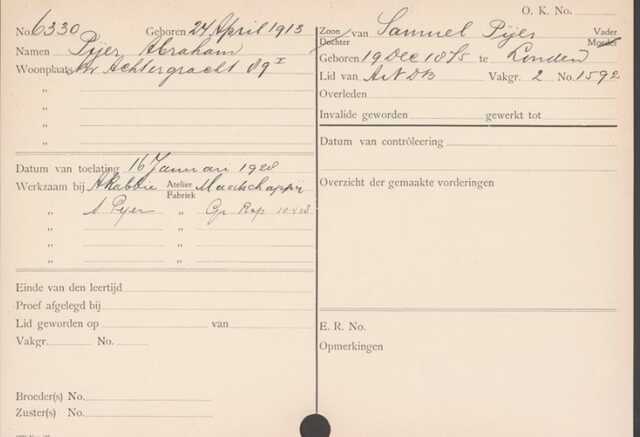 O. K. No.
No. 6330 Geboren 24 April 1913
Namen Pijer Abraham
Woonplaats Nw Achtergracht 89 I
"
"
"
"
Datum van toelating 16 Januari 1928
Werkzaam bij Atelier Fabriek Maatschappij
" S. Pijer " Op Rap 10-4-28
" "
" "
" "
Einde van den leertijd
Proef afgelegd bij
Lid geworden op van
Vakgr. No.
Broeder(s) No.
Zuster(s) No.
Zoon Dochter van Samuel Pijer Vader Moeder
Geboren 19 Dec 1875 te Londen
Lid van ANDB Vakgr. 2 No. 1592
Overleden
Invalide geworden gewerkt tot
Datum van contrôleering
Overzicht der gemaakte vorderingen
E. R. No.
Opmerkingen